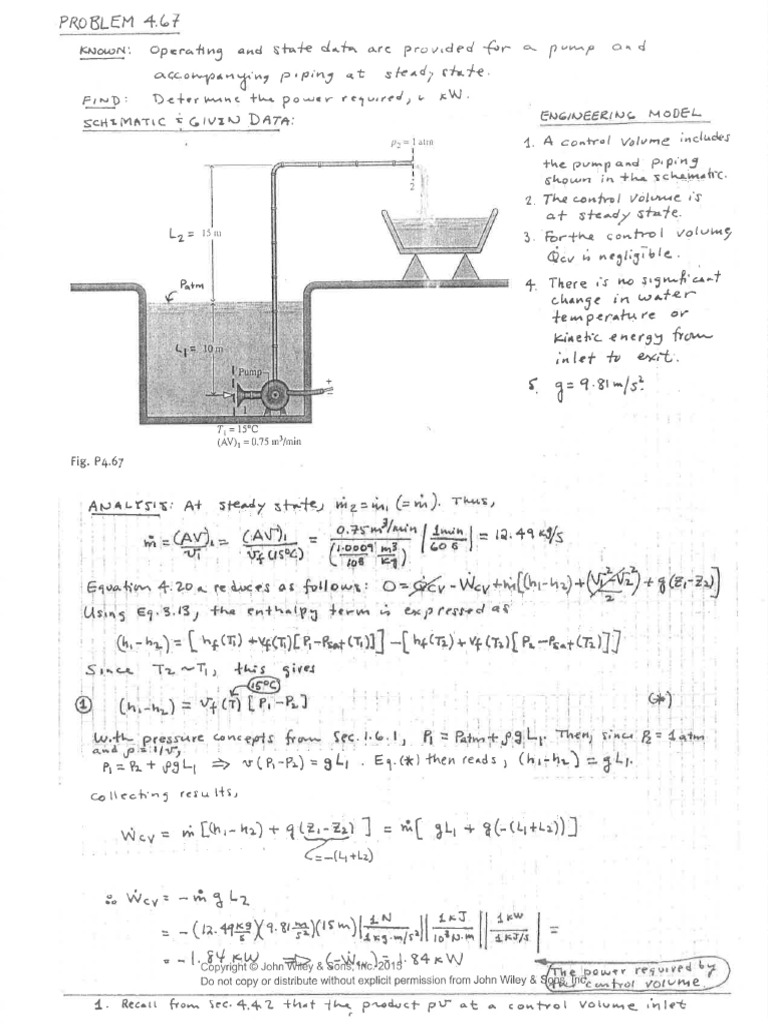 PROBLEM 4.67
KNOWN: Operating and state data are provided for a pump and
accompanying piping at steady state.
FIND: Determine the power required, kW.
SCHEMATIC & GIVEN DATA:
P2 = 1 atm
2
L2 = 15 m
Patm
L1 = 10 m
Pump
+
–
T1 = 15°C
(AV)1 = 0.75 m³/min
Fig. P4.67
ENGINEERING MODEL
1. A control volume includes
the pump and piping
shown in the schematic.
2. The control volume is
at steady state.
3. For the control volume,
Q̇cv is negligible.
4. There is no significant
change in water
temperature or
kinetic energy from
inlet to exit.
5. g = 9.81 m/s².
ANALYSIS: At steady state, ṁ2 = ṁ1 (= ṁ). Thus,
ṁ = (AV)1/v1 = (AV)1/vf(15°C) = 0.75 m³/min/(1.0009/10³ m³/kg) |1 min/60 s| = 12.49 kg/s
Equation 4.20a reduces as follows: 0 = Q̇cv - Ẇcv + ṁ[(h1-h2) + (V1²-V2²)/2 + g(z1-z2)]
Using Eq. 3.13, the enthalpy term is expressed as
(h1-h2) = [hf(T1) + vf(T1)[P1-Psat(T1)]] - [hf(T2) + vf(T2)[P2-Psat(T2)]]
Since T2 ~ T1, this gives
15°C
① (h1-h2) = vf(T) [P1-P2] (*)
With pressure concepts from Sec. 1.6.1, P1 = Patm + ρgL1. Then, since P2 = 1 atm
and ρ = 1/v,
P1 = P2 + ρgL1 ⇒ v(P1-P2) = gL1. Eq. (*) then reads, (h1-h2) = gL1.
Collecting results,
Ẇcv = ṁ [(h1-h2) + g(z1-z2)] = ṁ[gL1 + g(-(L1+L2))]
= -(L1+L2)
∴ Ẇcv = - ṁ g L2
= -(12.49 kg/s)(9.81 m/s²)(15 m)|1 N/1 kg·m/s²||1 kJ/10³ N·m||1 kW/1 kJ/s| =
= -1.84 kW ⇒ (-Ẇcv) = 1.84 kW
The power required by
the control volume.
Copyright © John Wiley & Sons, Inc. 2015
Do not copy or distribute without explicit permission from John Wiley & Sons, Inc.
1. Recall from Sec. 4.4.2 that the product pv at a control volume inlet